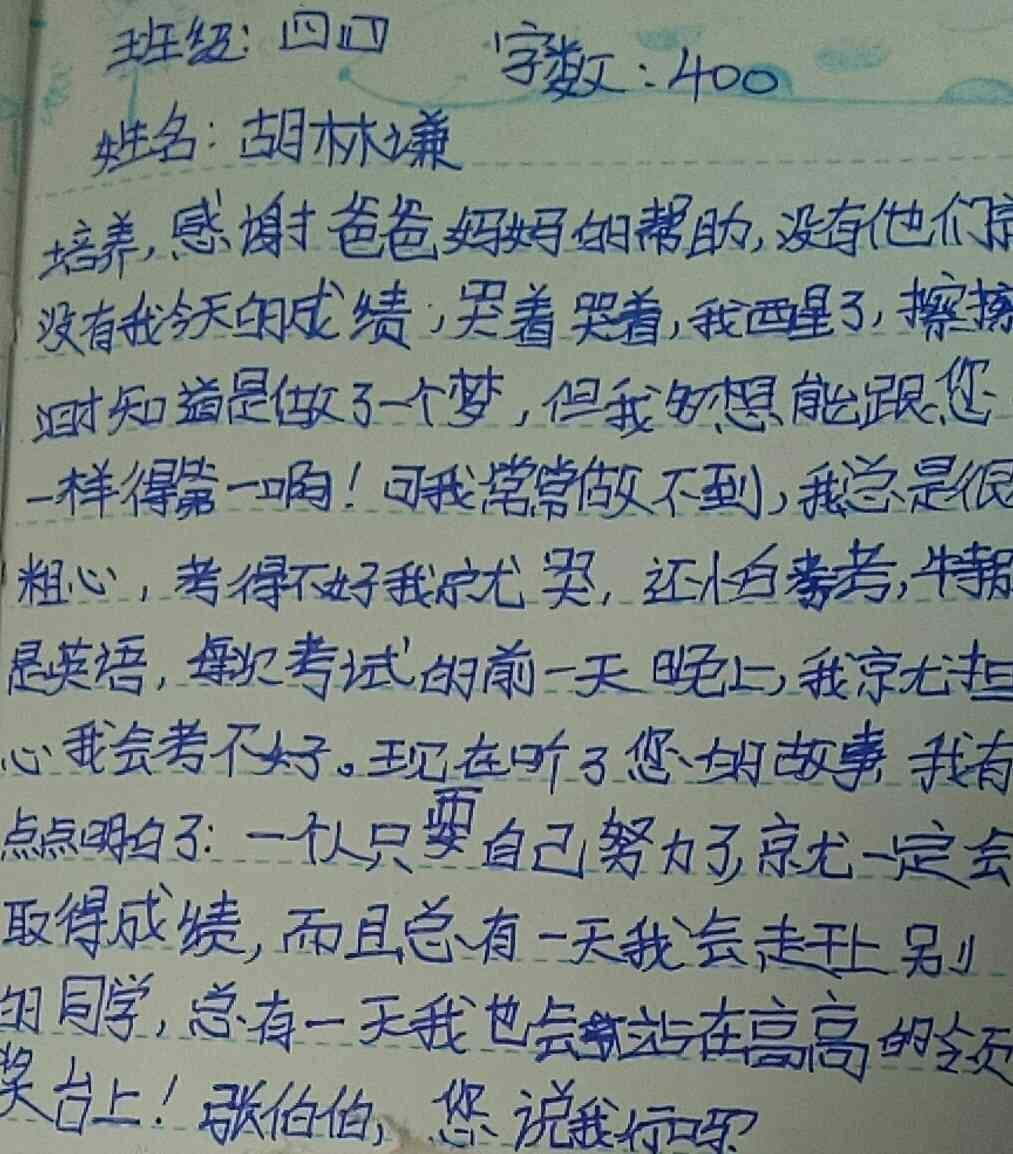 班级：四四 字数：400
姓名：胡林谦
培养，感谢爸爸妈妈的帮助，没有他们就
没有我今天的成绩；哭着哭着，我醒了，擦擦
眼才知道是做了一个梦，但我多想能跟您
一样得第一啊！可我常常做不到，我总是很
粗心，考得不好我就哭，还怕考，特别
是英语，每次考试的前一天晚上，我就担
心我会考不好。现在听了您的故事 我有
点点明白了：一个人只要自己努力了，就一定会
取得成绩，而且总有一天我会赶上别
的同学，总有一天我也会站在高高的领
奖台上！张伯伯，您说我行吗？